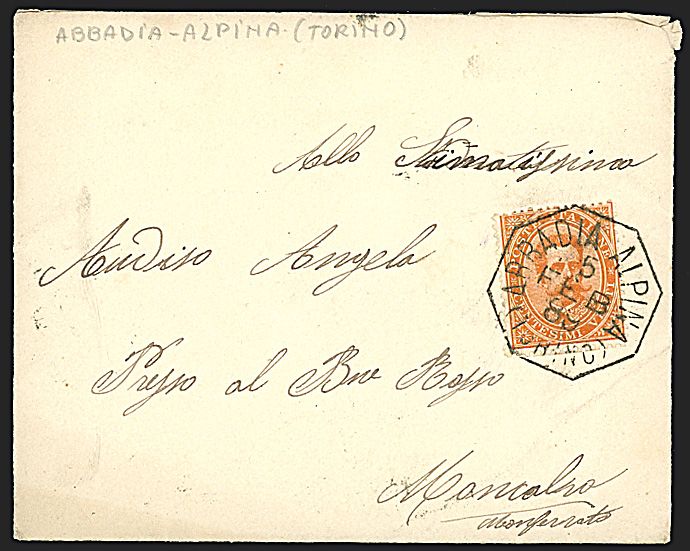 ABBADIA-ALPINA-(TORINO)
Allo Stimatissimo
Audiso Angelo
Presso al Bue Rosso
Moncalvo
Monferrato
ABBADIA ALPINA (TORINO)
5 FEB